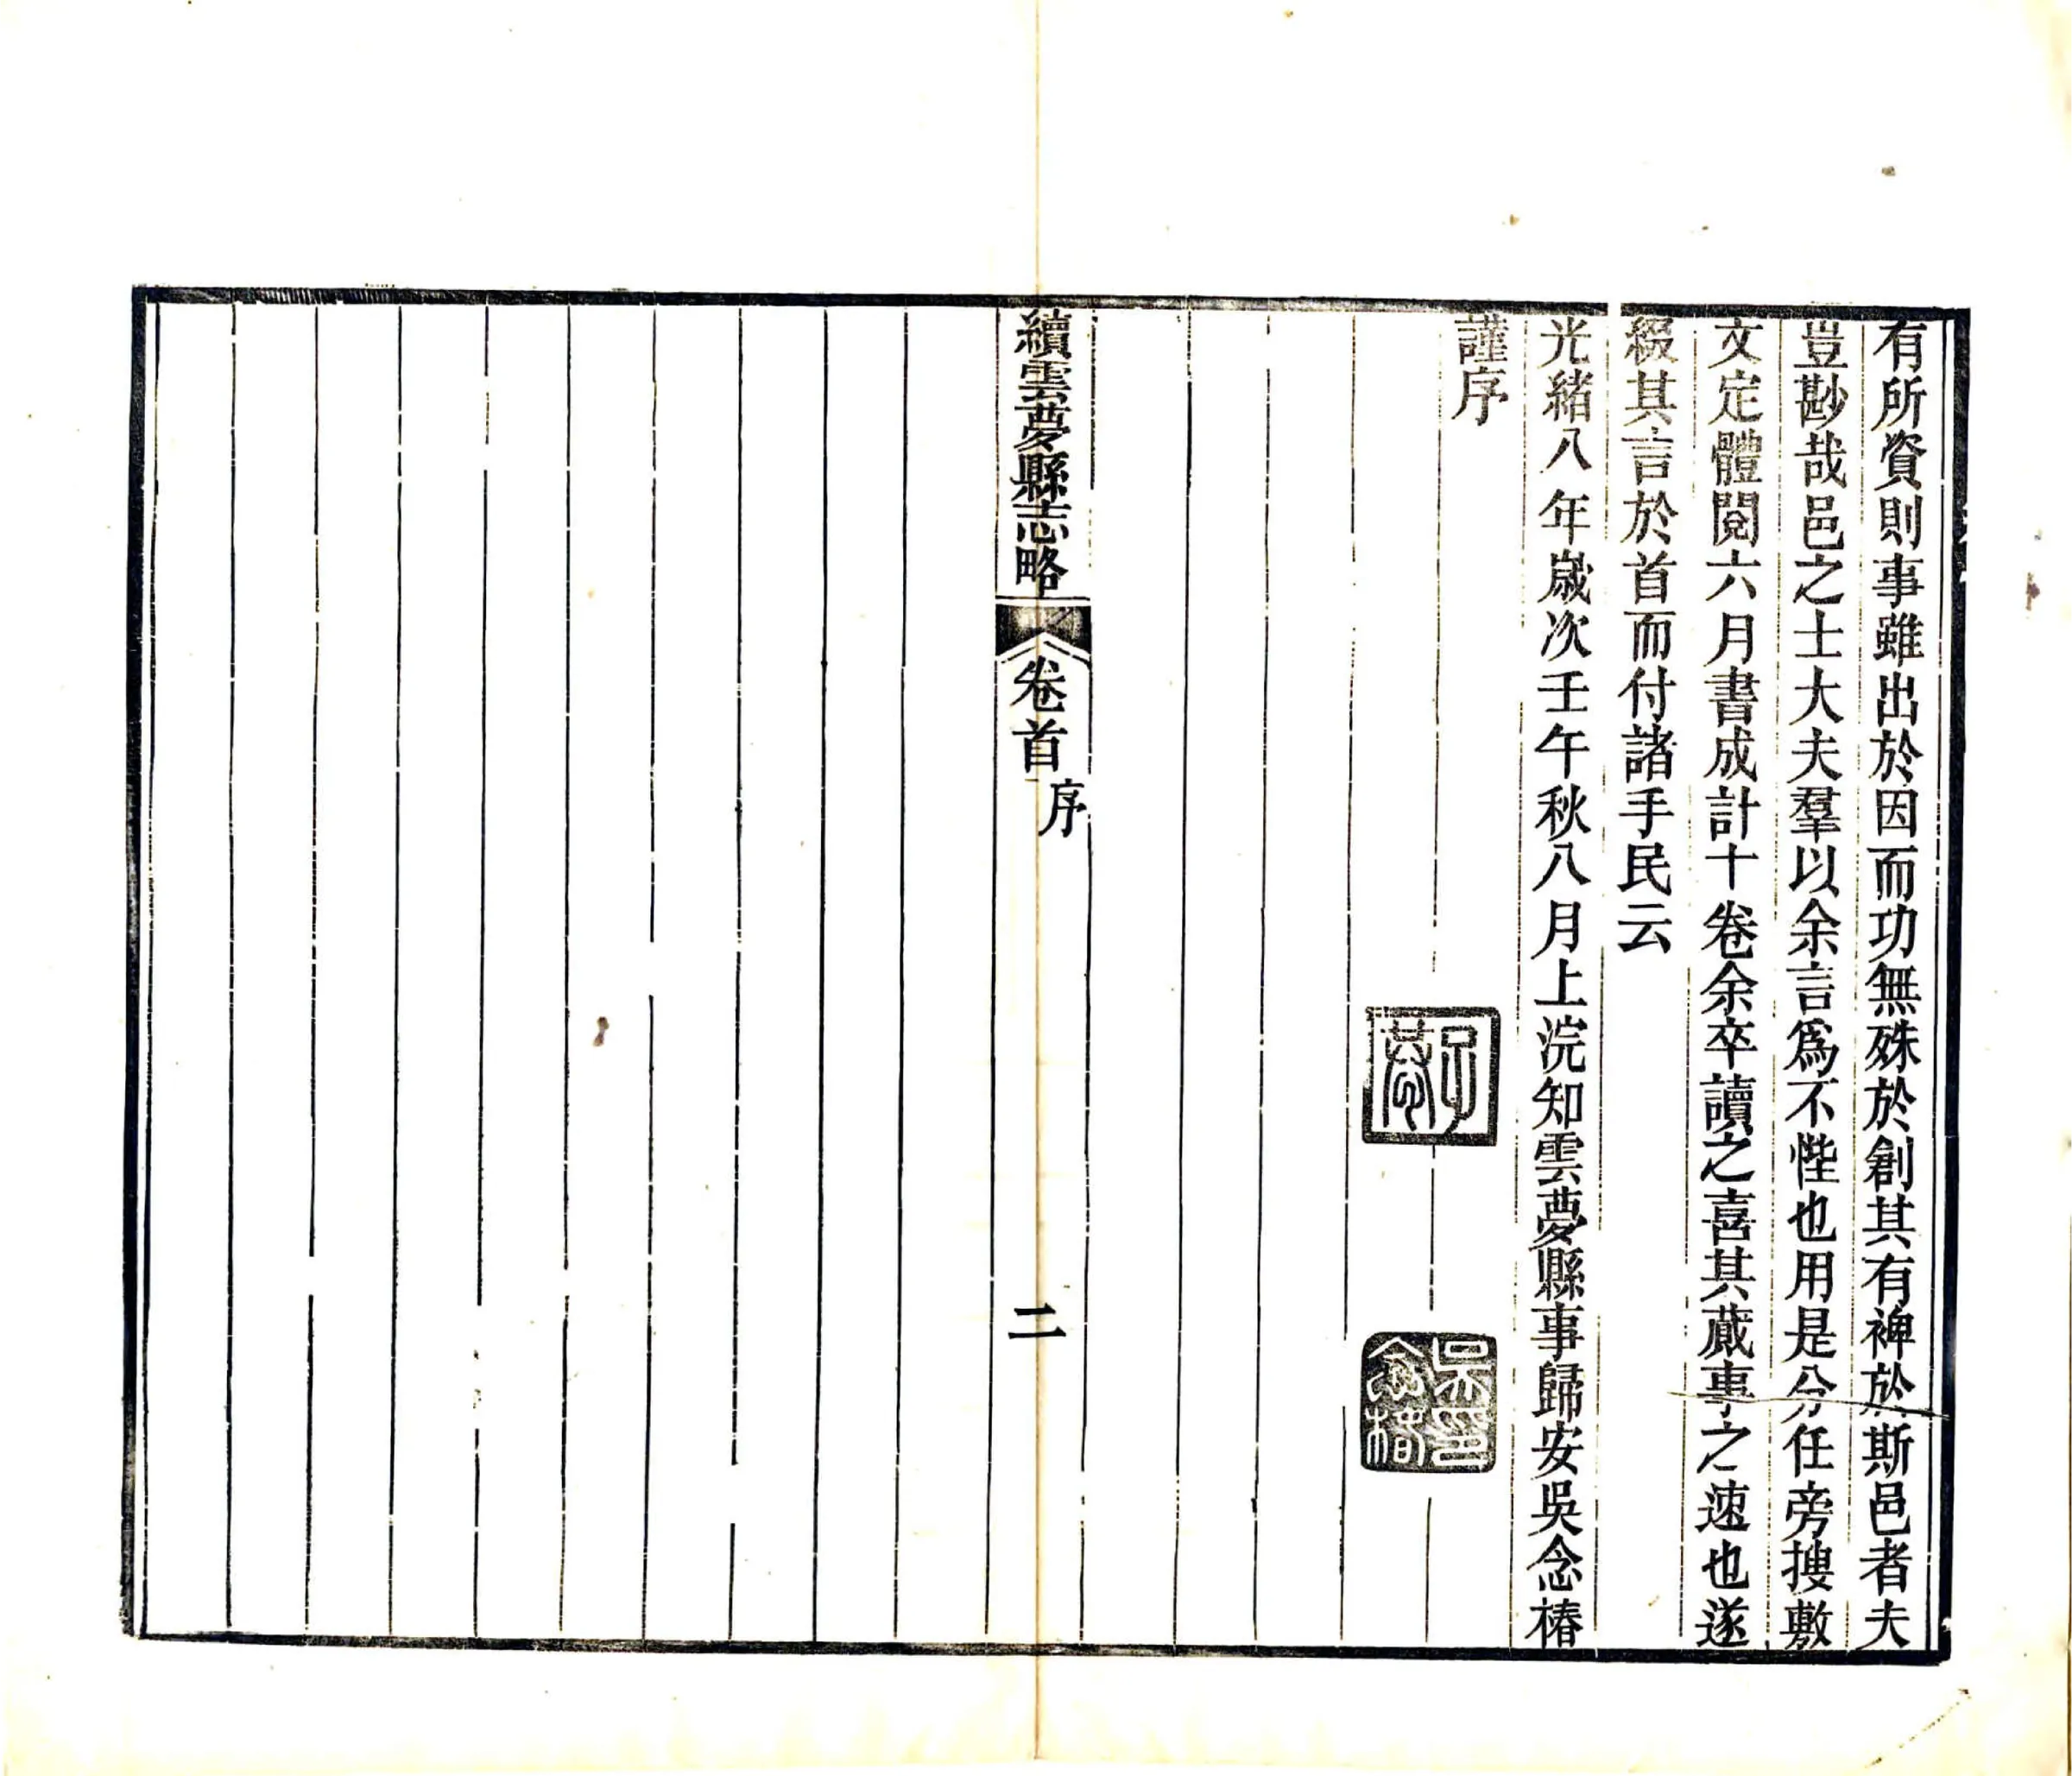 有所資則事雖出於因而功無殊於創其有裨於斯邑者夫
豈尠哉邑之士大夫羣以余言爲不悂也用是分任旁搜敷
文定體閱六月書成計十卷余卒讀之喜其蕆事之速也遂
綴其言於首而付諸手民云
光緒八年歲次壬午秋八月上浣知雲夢縣事歸安吳念椿
謹序
吳念椿印
續雲夢縣志略
卷首
序
二